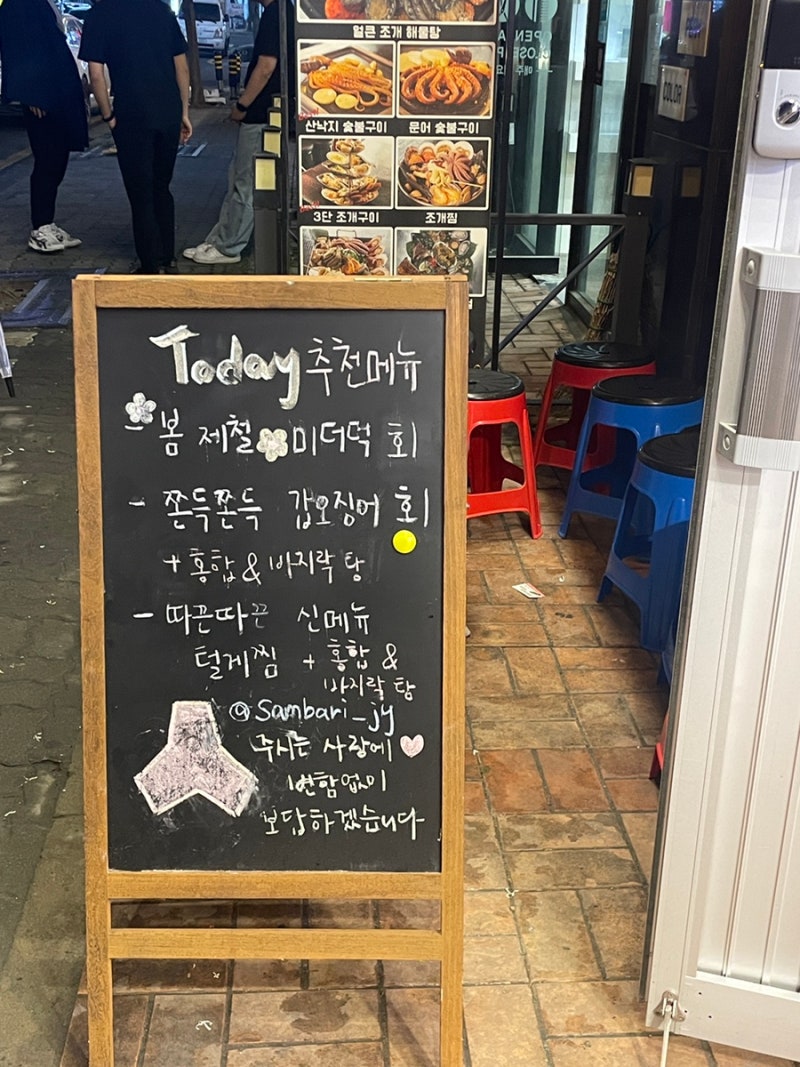 얼큰 조개 해물탕
산낙지 숯불구이
문어 숯불구이
3단 조개구이
조개찜
COLOR
Today 추천메뉴
- 봄 제철 미더덕 회
- 쫀득쫀득 갑오징어 회
+ 홍합 & 바지락 탕
- 따끈따끈 신메뉴
털게찜 + 홍합 &
바지락 탕
@Sambari_jy
주시는 사랑에
변함없이
보답하겠습니다